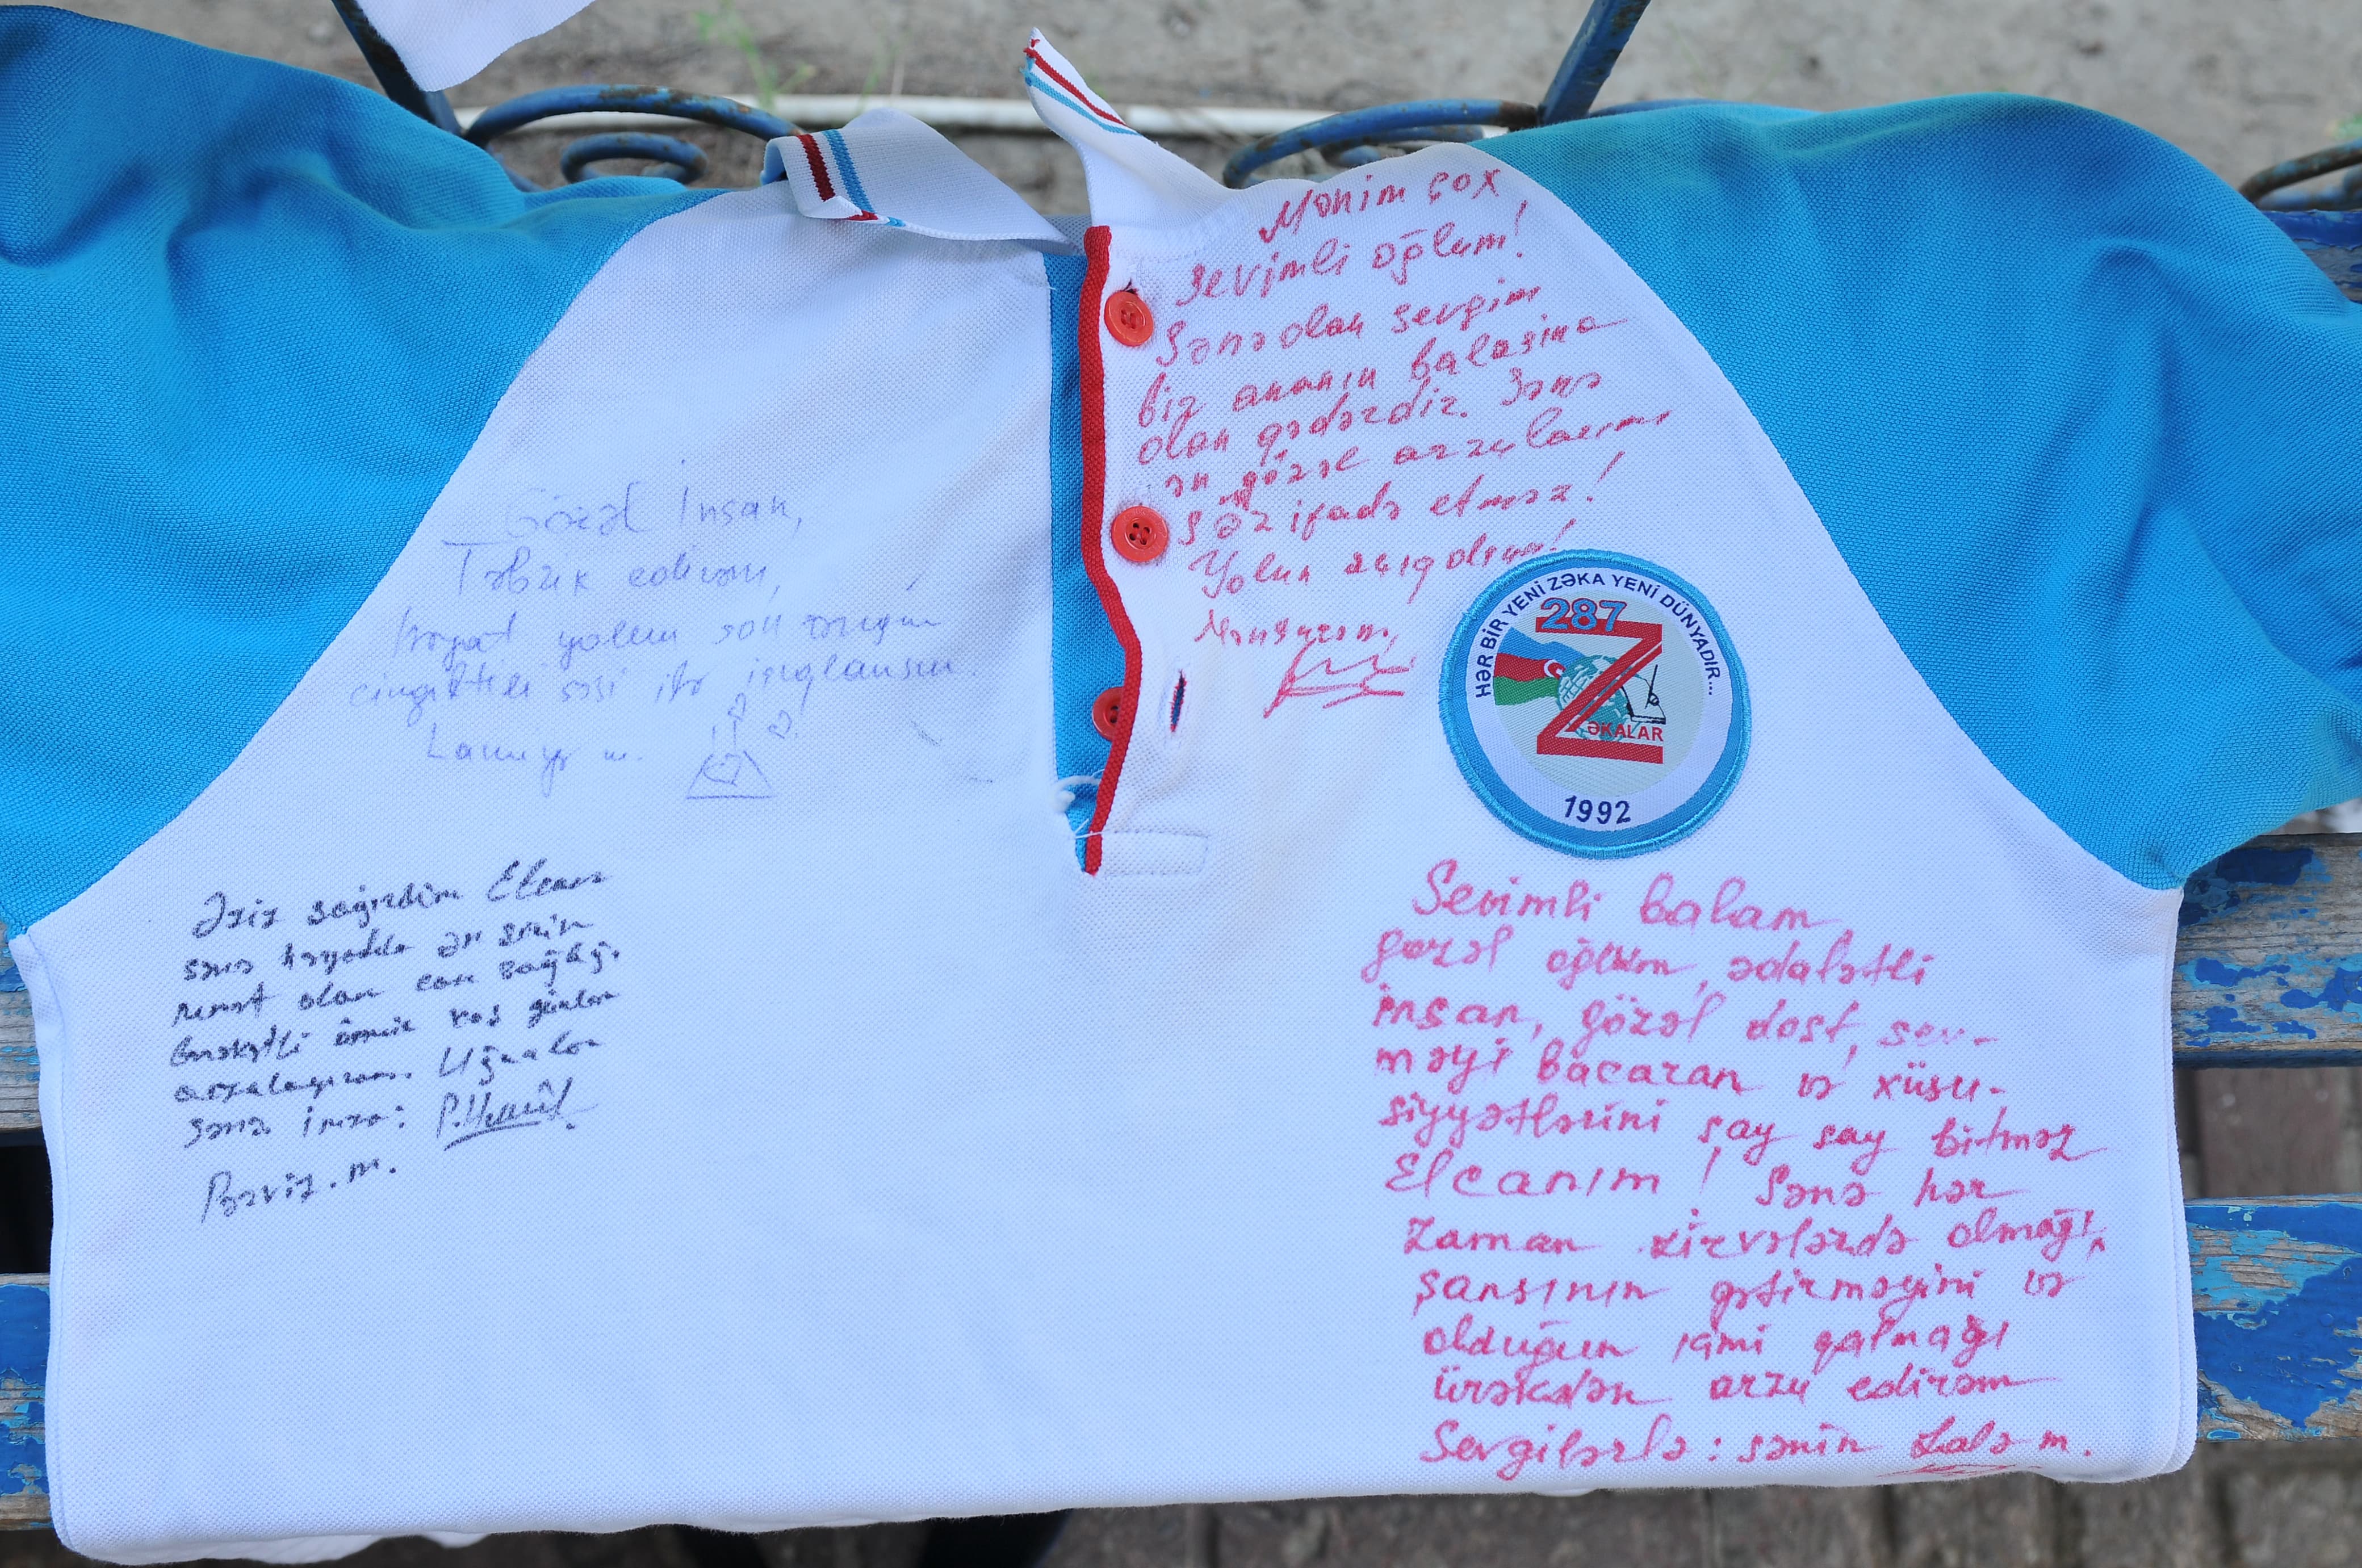 Mənim çox
sevimli oğlum!
Sənə olan sevgim
bir ananın balasına
olan qədərdir. Sənə
ən gözəl arzularımı
söz ifadə etməz!
Yolun açıq olsun!
Gözəl İnsan,
Təbrik edirəm,
həyat yolun son zəngin
cingiltili səsi ilə işıqlansın.
Lamiyə m.
HƏR BİR YENİ ZƏKA YENİ DÜNYADIR...
287
ZƏKALAR
1992
Əziz şagirdim Elcan
sənə həyatda ən şirin
nemət olan can sağlığı
bərəkətli ömür xoş günlər
arzulayıram. Uğurlar
sənə. İmza:
Pərviz.m.
Sevimli balam
gözəl oğlum, ədalətli
insan, gözəl dost, sev-
məyi bacaran və xüsu-
siyyətlərini say say bitməz
Elcanım! Sənə hər
zaman zirvələrdə olmağı,
şansının gətirməyini və
olduğun kimi qalmağı
ürəkdən arzu edirəm
Sevgilərlə: sənin Lalə m.